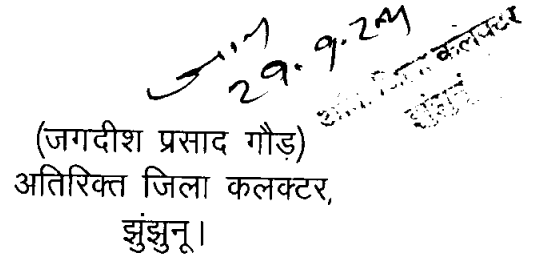 29.9.2014
अति. जिला कलक्टर
झुंझुनूं
(जगदीश प्रसाद गौड़)
अतिरिक्त जिला कलक्टर,
झुंझुनू।